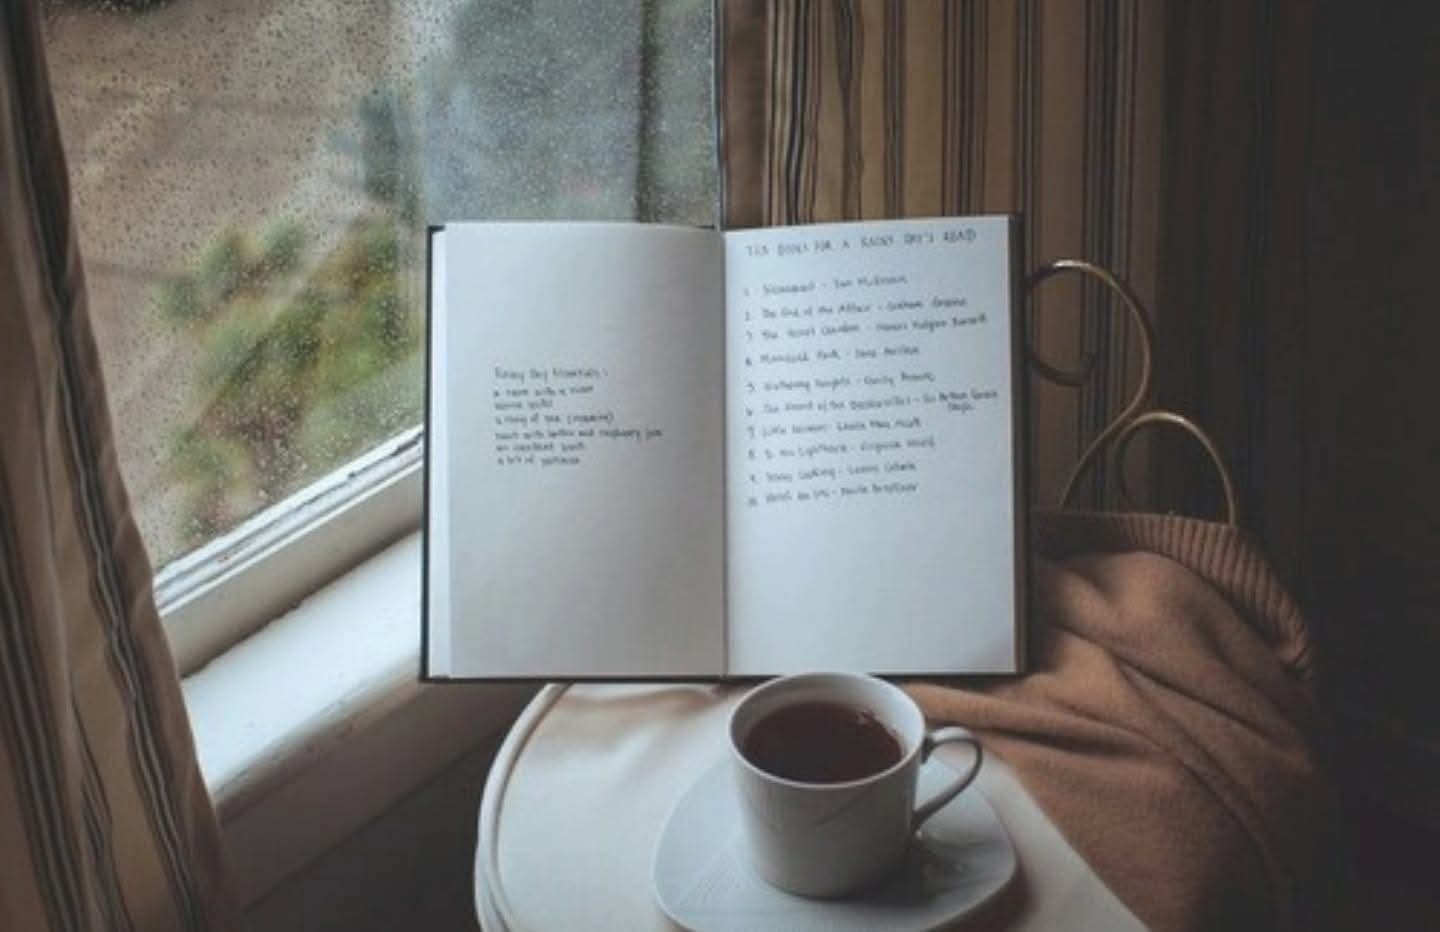 Rainy Day Essentials:
a room with a view
some quiet
a mug of tea
toast with butter and raspberry jam
an excellent book
a bit of patience
TEN BOOKS FOR A RAINY DAY'S READ
1. Ian McEwan
2. The End of the Affair - Graham Greene
3. The Secret Garden - Frances Hodgson Burnett
4. Mansfield Park - Jane Austen
5. Wuthering Heights - Emily Brontë
6. The Hound of the Baskervilles - Sir Arthur Conan
Doyle
7. Little Women - Louisa May Alcott
8. To the Lighthouse - Virginia Woolf
9. Home Cooking - Laurie Colwin
10. Hotel du Lac - Anita Brookner